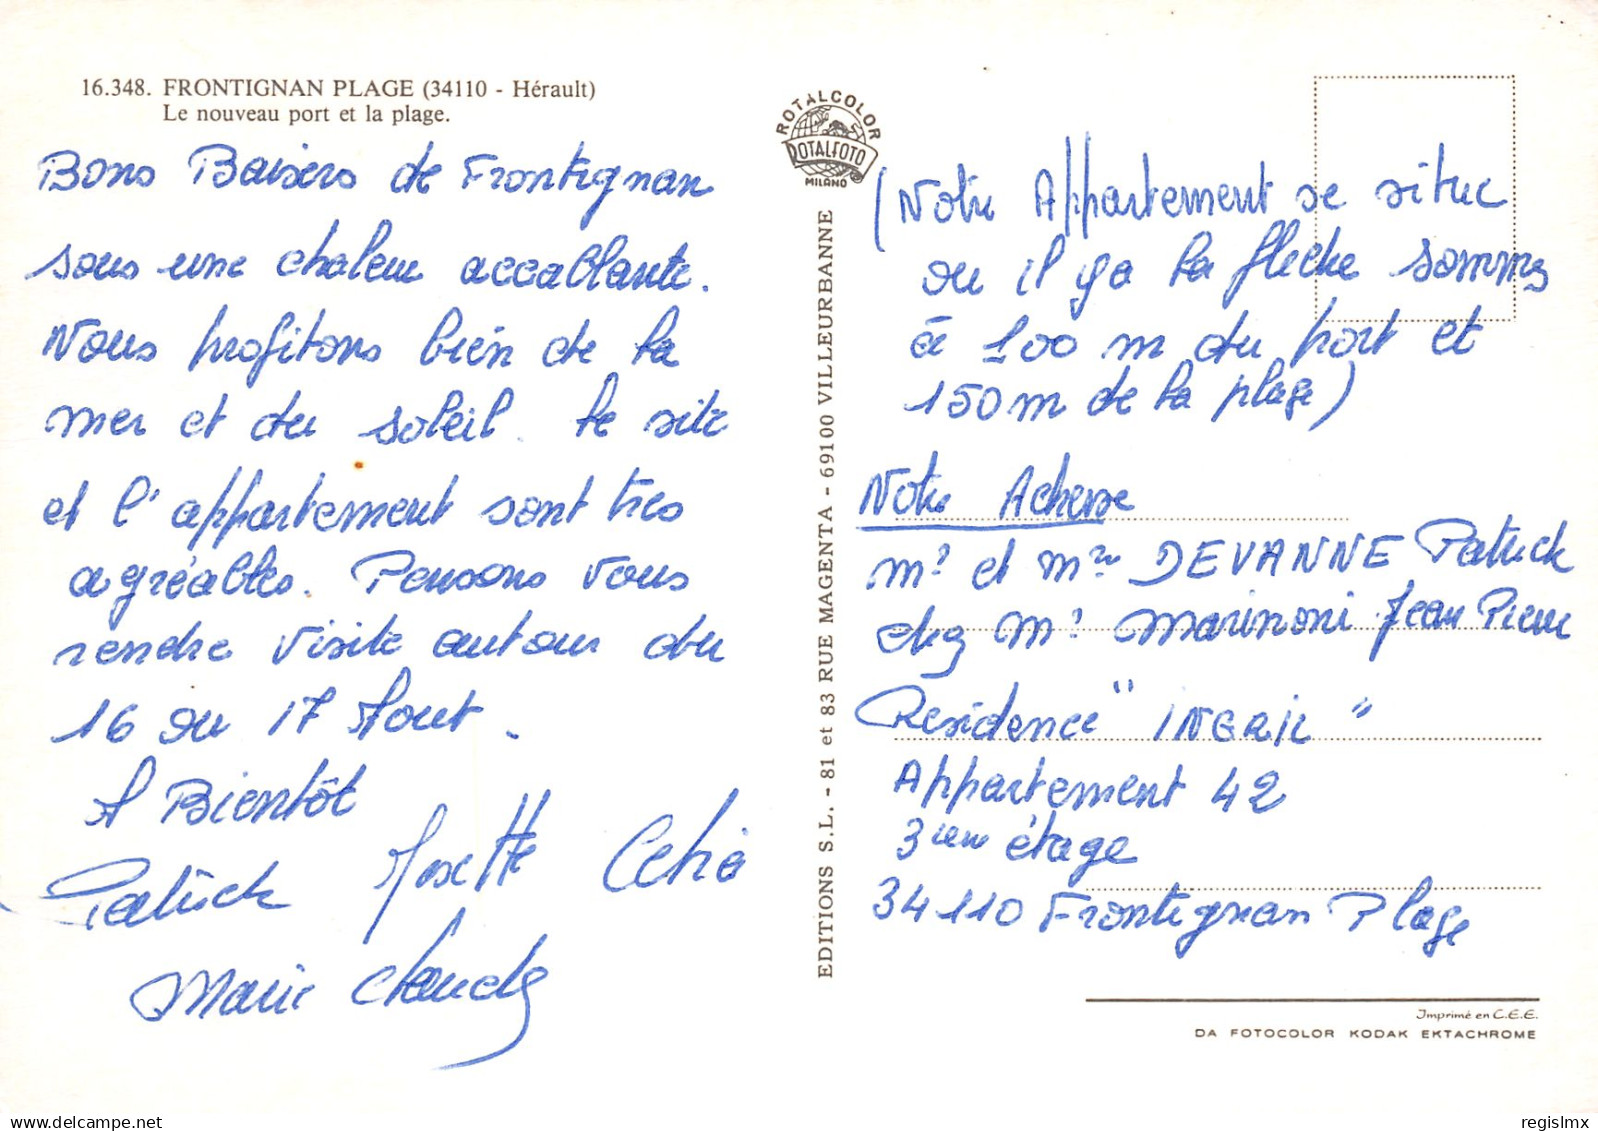 16.348. FRONTIGNAN PLAGE (34110 - Hérault)
Le nouveau port et la plage.
Bons Baisers de Frontignan
sous une chaleur accablante.
Nous profitons bien de la
mer et du soleil. Le site
et l'appartement sont très
agréables. Pensons vous
rendre visite autour du
16 ou 17 Aout.
A Bientôt
Patrick Josette Celia
Marie Claude
ROTALCOLOR
ROTALFOTO
MILANO
EDITIONS S.L. - 81 et 83 RUE MAGENTA - 69100 VILLEURBANNE
(Notre Appartement se situe
ou il y a la flèche sommes
à 100 m du port et
150 m de la plage)
Notre Adresse
Mr et Mme DEVANNE Patrick
chez Mr Marinoni Jean Pierre
Residence "INGRIL"
Appartement 42
3ieme étage
34110 Frontignan Plage
Imprimé en C.E.E.
DA FOTOCOLOR KODAK EKTACHROME
regislmx